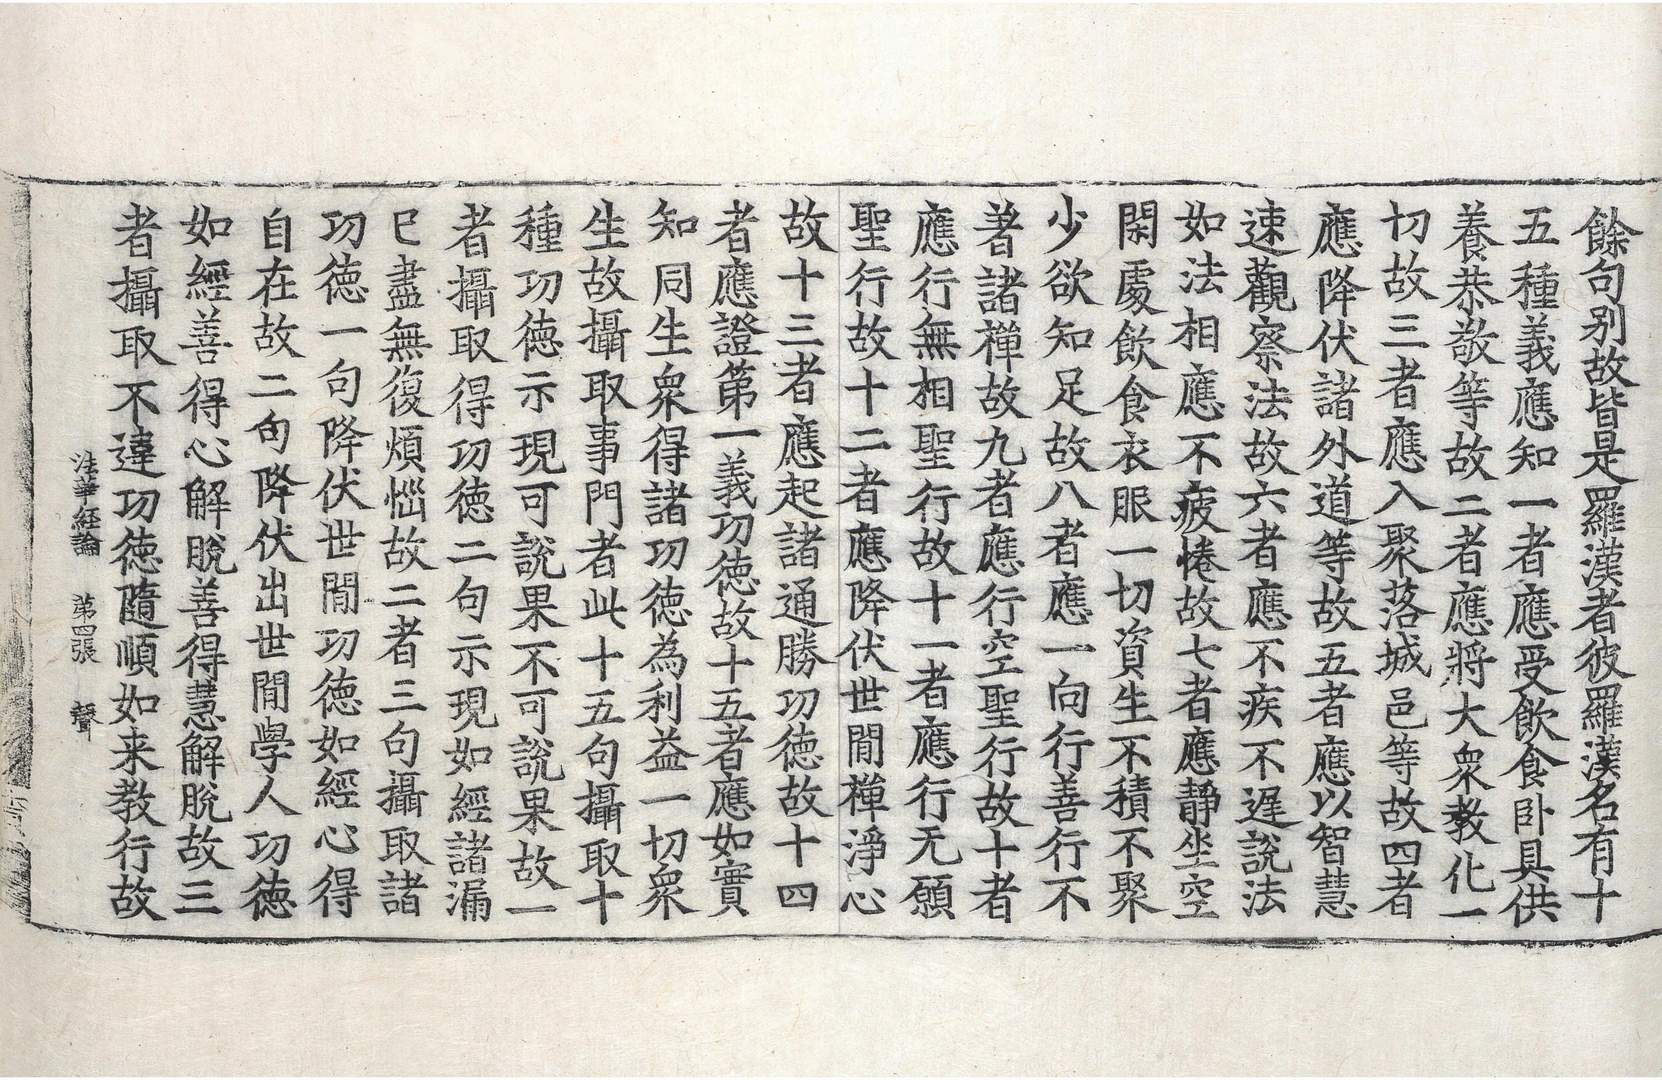 餘句别故皆是羅漢者彼羅漢名有十
五種義應知一者應受飲食卧具供
養恭敬等故二者應將大衆教化一
切故三者應入聚落城邑等故四者
應降伏諸外道等故五者應以智慧
速觀察法故六者應不疾不遅說法
如法相應不疲惓故七者應静坐空
閑處飲食衣眼一切資生不積不聚
少欲知足故八者應一向行善行不
著諸禅故九者應行空聖行故十者
應行無相聖行故十一者應行无願
聖行故十二者應降伏世間禅淨心
故十三者應起諸通勝功徳故十四
者應證第一義功徳故十五者應如實
知同生衆得諸功徳為利益一切衆
生故攝取事門者此十五句攝取十
種功徳示現可說果不可說果故一
者攝取得功徳二句示現如經諸漏
已盡無復煩惱故二者三句攝取諸
功徳一句降伏世間功徳如經心得
自在故二句降伏出世間學人功徳
如經善得心解脫善得慧解脫故三
者攝取不違功徳隨順如来教行故
法華經論 第四張 聲